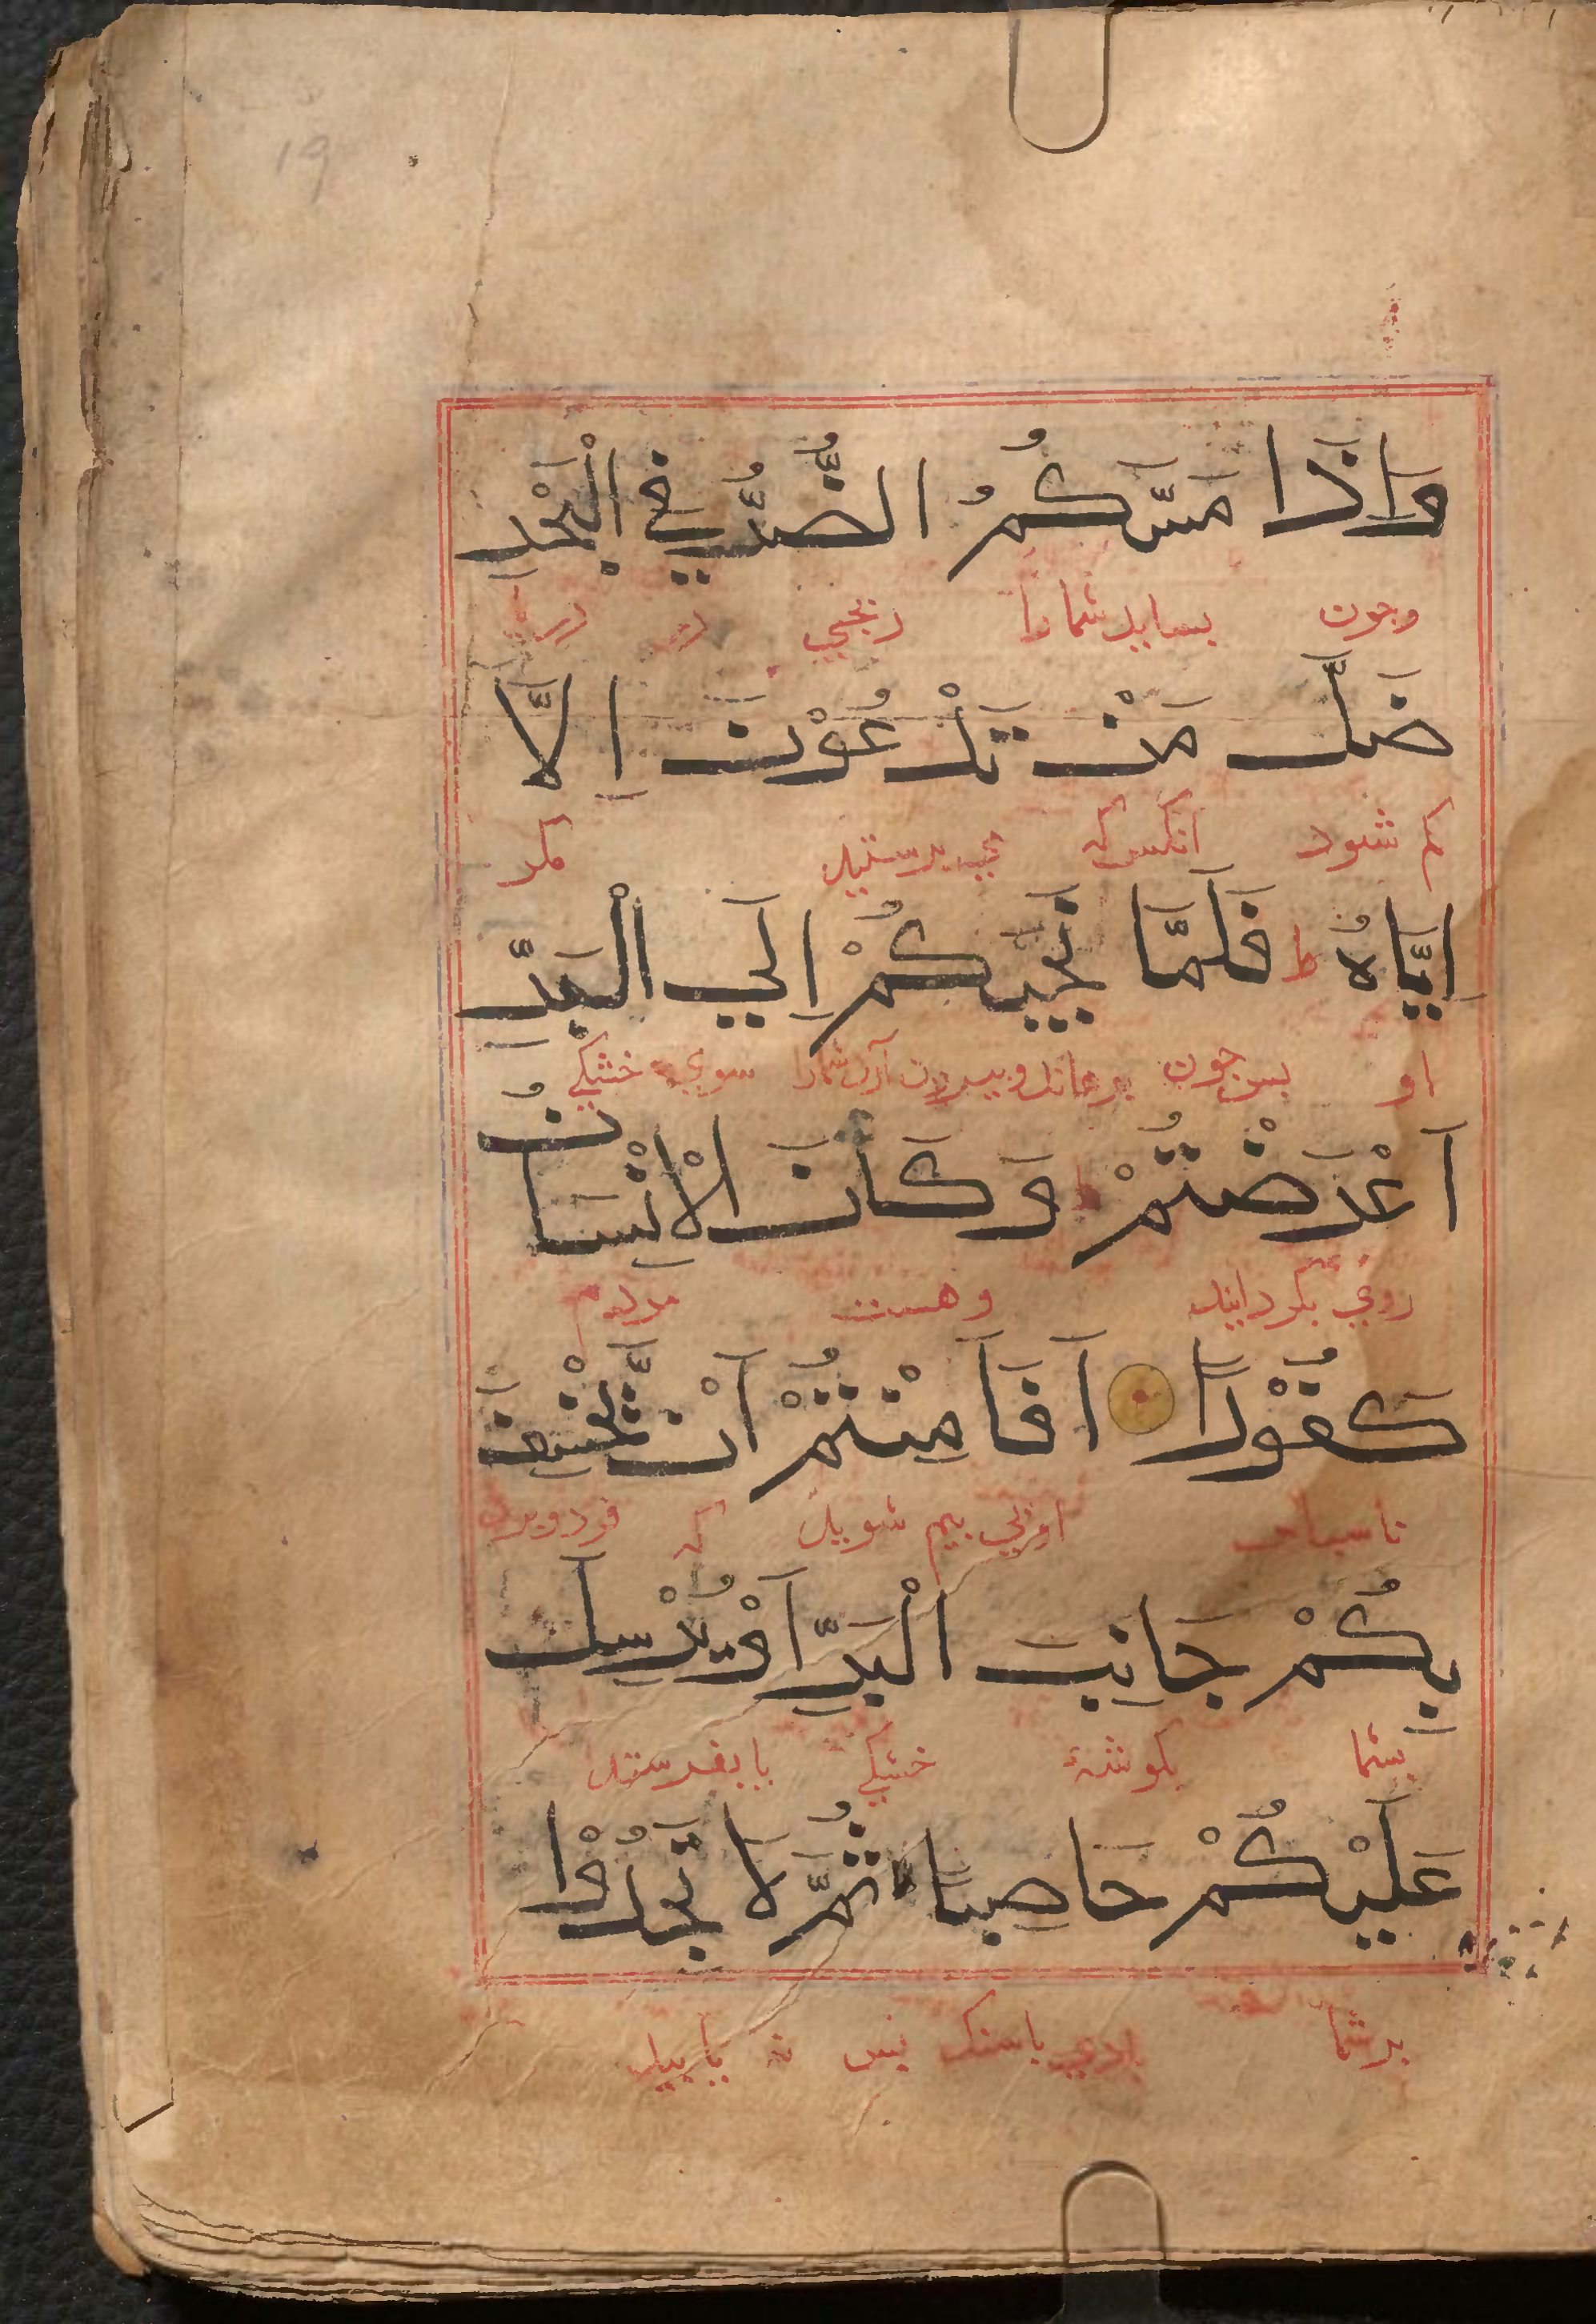 19
وَاِذَا مَسَّكُمُ الضُّرُّ فِي الْبَحْرِ
وجون بسايد شمارا رنجي در دريا
ضَلَّ مَنْ تَدْعُوْنَ اِلَّا
كم شود آنكس كه مي پرستيد مكر
اِيَّاهُ ط فَلَمَّا نَجّٰيكُمْ اِلَي الْبَرِّ
او بس جون برهاند وبيرون آرد شمارا سوي خشكي
اَعْرَضْتُمْ ط وَكَانَ الْاِنْسَانُ
روي بكردانيد وهست مردم
كَفُوْرًا اَفَاَمِنْتُمْ اَنْ يَّخْسِفَ
ناسپاس بيم شويد كه فرو برد
بِكُمْ جَانِبَ الْبَرِّ اَوْ يُرْسِلَ
بشما بكوشۀ خشكي يا بفرستد
عَلَيْكُمْ حَاصِبًا ثُمَّ لَا تَجِدُوْا
برشما بادي با سنك بس نه يابيد